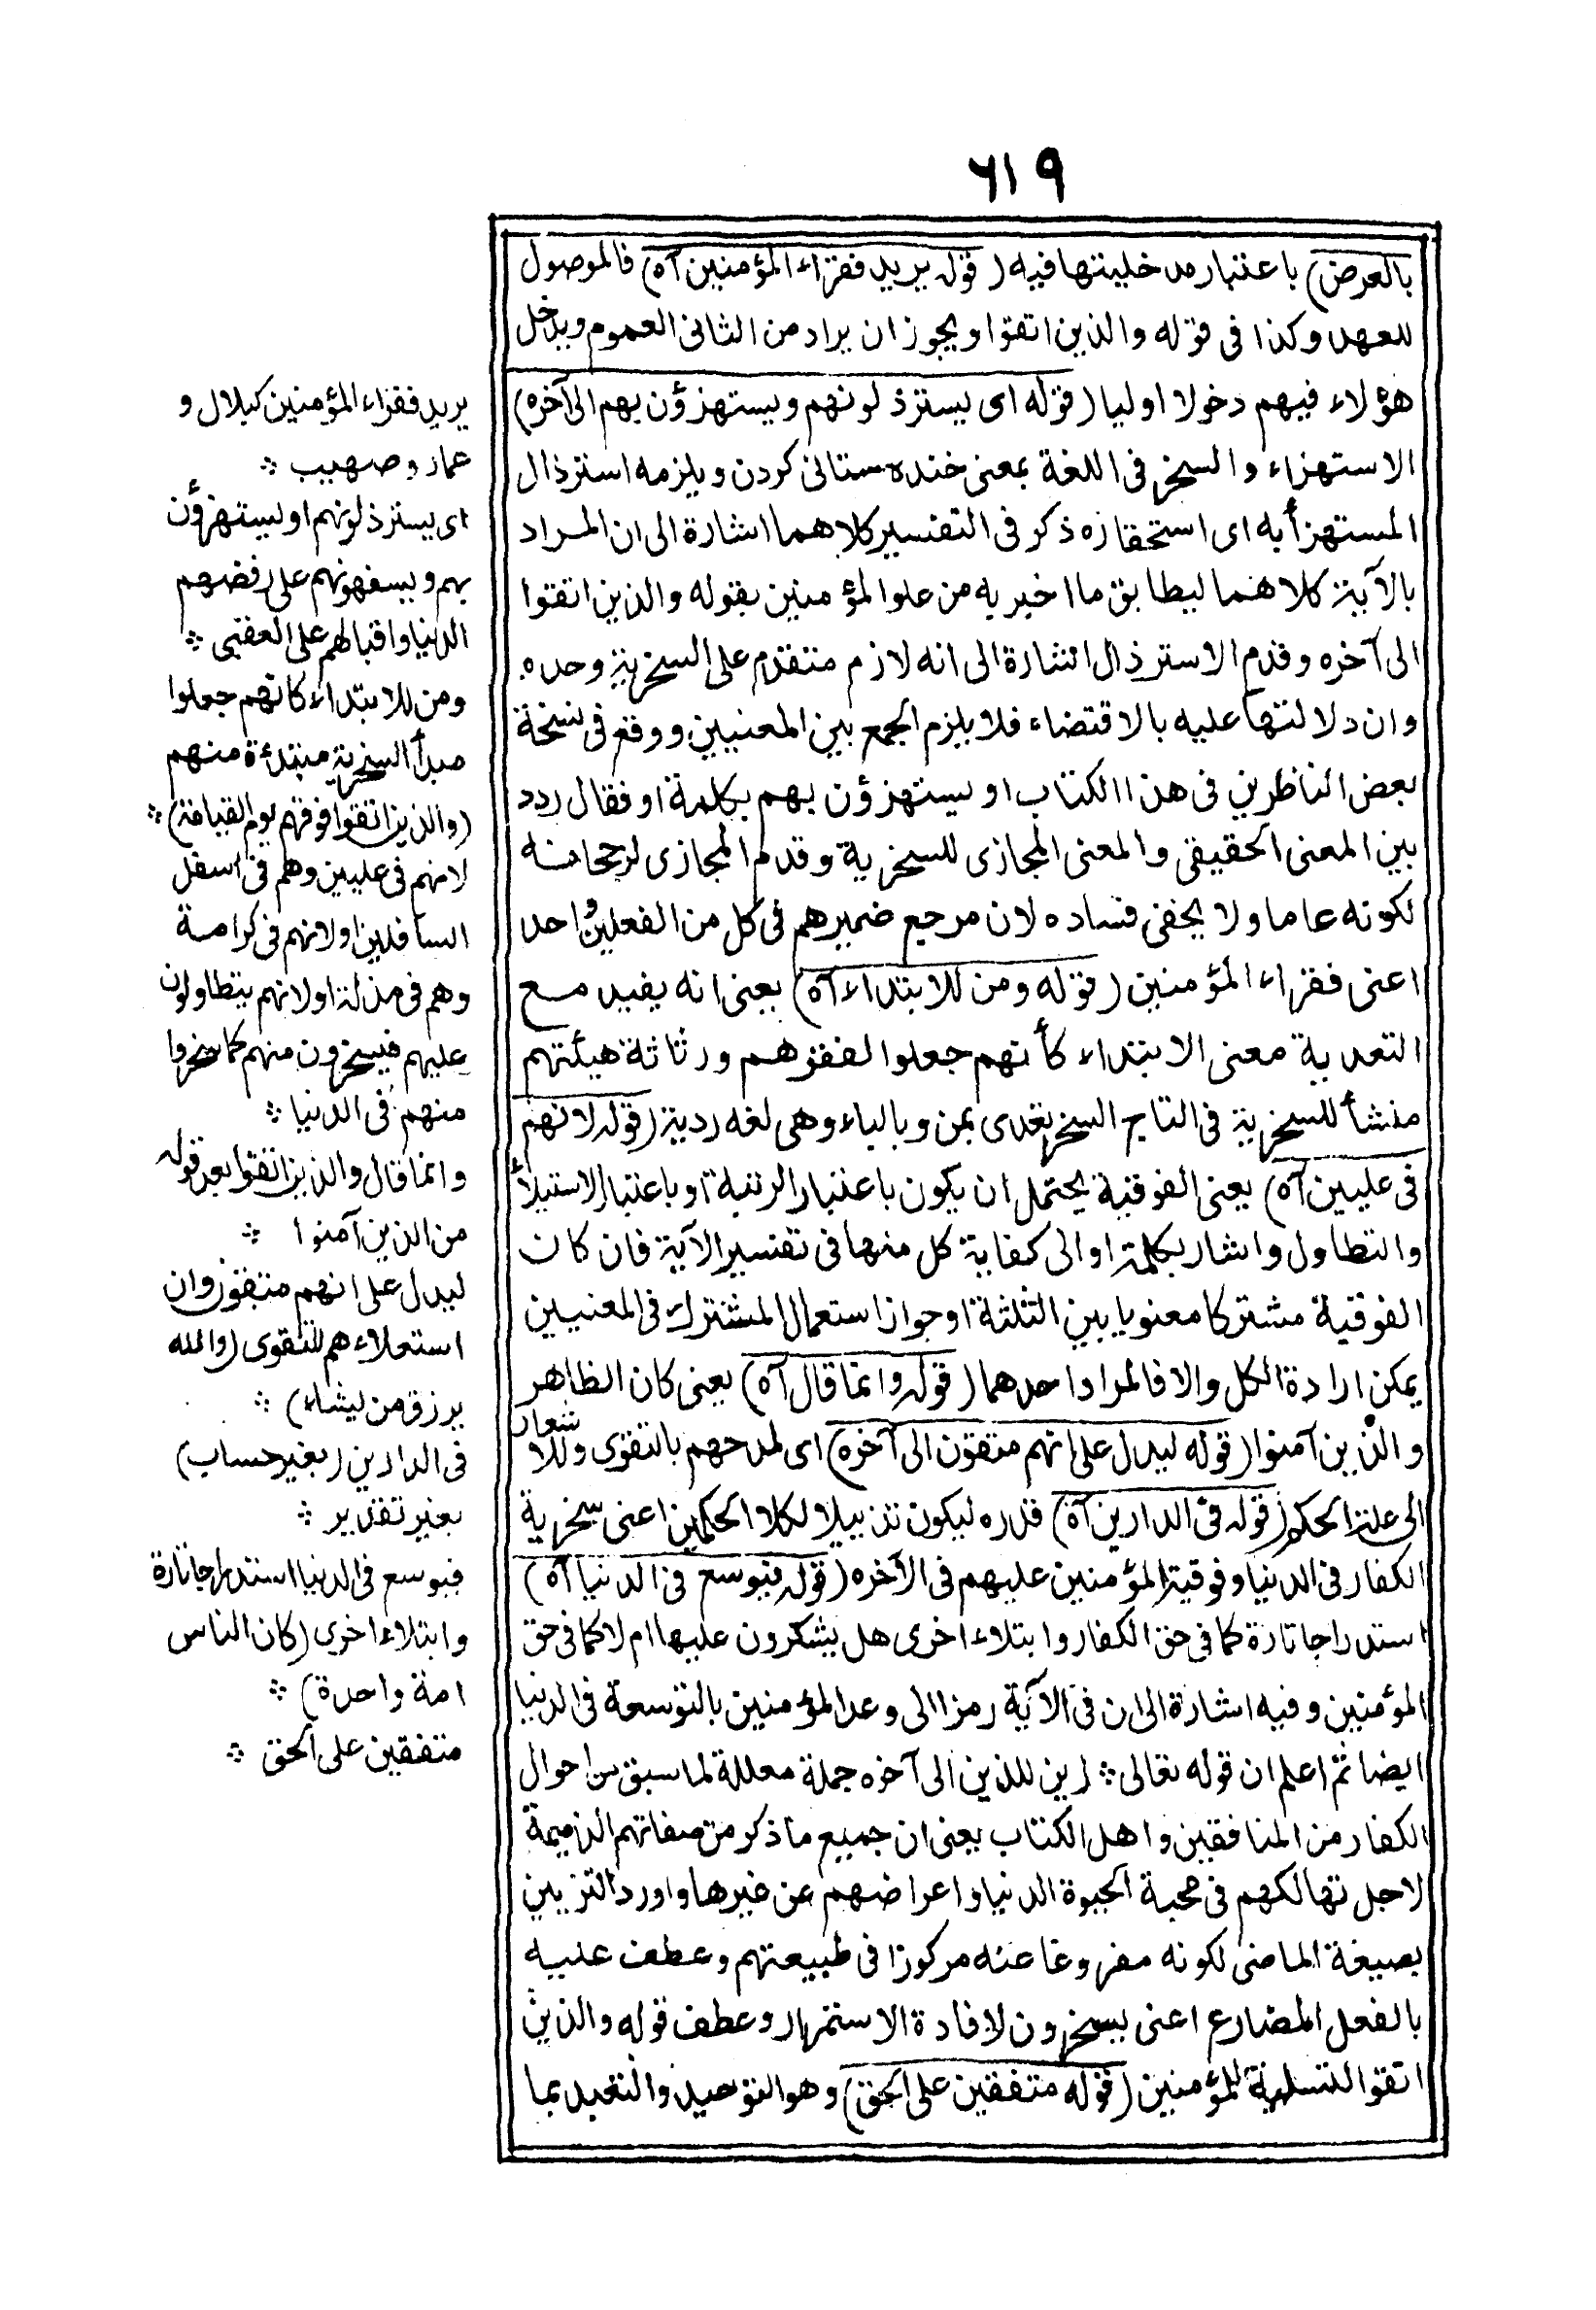 ٦١٩
بالعرض) باعتبار مدخليتها فيه (قوله يريد فقراء المؤمنين آه) فالموصول
للعهد وكذا فى قوله والذين اتقوا ويجوز ان يراد من الثانى العموم ويدخل
هؤلاء فيهم دخولا اوليا (قوله اى يسترذلونهم ويستهزؤن بهم الى آخره)
الاستهزاء والسخر فى اللغة بمعنى خنده ستانى كردن ويلزمه استرذال
المستهزأ به اى استحقاره ذكر فى التفسير كلاهما اشارة الى ان المراد
بالآية كلاهما ليطابق ما اخبر به من علو المؤمنين بقوله والذين اتقوا
الى آخره وقدم الاسترذال اشارة الى انه لازم متقدم على السخرية وحده
وان دلالتها عليه بالاقتضاء فلا يلزم الجمع بين المعنيين ووقع فى نسخة
بعض الناظرين فى هذا الكتاب او يستهزؤن بهم بكلمة او فقال ردد
بين المعنى الحقيقى والمعنى المجازى للسخرية وقدم المجازى لرجحانه
لكونه عاما ولا يخفى فساده لان مرجع ضميرهم فى كل من الفعلين واحد
اعنى فقراء المؤمنين (قوله ومن للابتداء آه) يعنى انه يفيد مع
التعدية معنى الابتداء كأنهم جعلوا لفقرهم ورثاثة هيئتهم
منشأ للسخرية فى التاج السخر يتعدى بمن وبالباء وهى لغه ردية (قوله لانهم
فى عليين آه) يعنى الفوقية يحتمل ان يكون باعتبار الرتبة او باعتبار الاستيلاء
والتطاول واشار بكلمة او الى كفاية كل منها فى تفسير الآية فان كان
الفوقية مشتركا معنويا بين الثلثة او جواز استعمال المشترك فى المعنيين
يمكن ارادة الكل والا فالمراد احدهما (قوله وانما قال آه) يعنى كان الظاهر
والذين آمنوا (قوله ليدل على انهم متقون الى آخره) اى لمدحهم بالتقوى وللاشعار
الى علة الحكم (قوله فى الدارين آه) قدره ليكون تذييلا لكلا الحكمين اعنى سخرية
الكفار فى الدنيا وفوقية المؤمنين عليهم فى الآخره (قوله فيوسع فى الدنيا آه)
استدراجا تارة كما فى حق الكفار وابتلاء اخرى هل يشكرون عليها ام لا كما فى حق
المؤمنين وفيه اشارة الى ان فى الآية رمزا الى وعد المؤمنين بالتوسعة فى الدنيا
ايضا ثم اعلم ان قوله تعالى ⁘ زين للذين الى آخره جملة معللة لما سبق من احوال
الكفار من المنافقين واهل الكتاب يعنى ان جميع ما ذكر من صفاتهم الذميمة
لاجل تهالكهم فى محبة الحيوة الدنيا واعراضهم عن غيرها واورد التزيين
بصيغة الماضى لكونه مفروغا عنه مركوزا فى طبيعتهم وعطف عليه
بالفعل المضارع اعنى يسخرون لافادة الاستمرار وعطف قوله والذين
اتقوا لتسلية المؤمنين (قوله متفقين على الحق) وهو التوحيد والتعبد بما
يريد فقراء المؤمنين كبلال و
عمار وصهيب ⁘
اى يسترذلونهم او يستهزؤن
بهم ويسفهونهم على رفضهم
الدنيا واقبالهم على العقبى ⁘
ومن للابتداء كانهم جعلوا
مبدأ السخرية مبتدئة منهم
(والذين اتقوا فوقهم يوم القيامة) ⁘
لانهم فى عليين وهم فى اسفل
السافلين اولانهم فى كرامة
وهم فى مذلة اولانهم يتطاولون
عليهم فيسخرون منهم كما سخروا
منهم فى الدنيا ⁘
وانما قال والذين اتقوا بعد قوله
من الذين آمنوا ⁘
ليدل على انهم متقون وان
استعلاءهم للتقوى (والله
يرزق من يشاء) ⁘
فى الدارين (بغير حساب)
بغير تقدير ⁘
فيوسع فى الدنيا استدراجا تارة
وابتلاء اخرى (كان الناس
امة واحدة) ⁘
متفقين على الحق ⁘